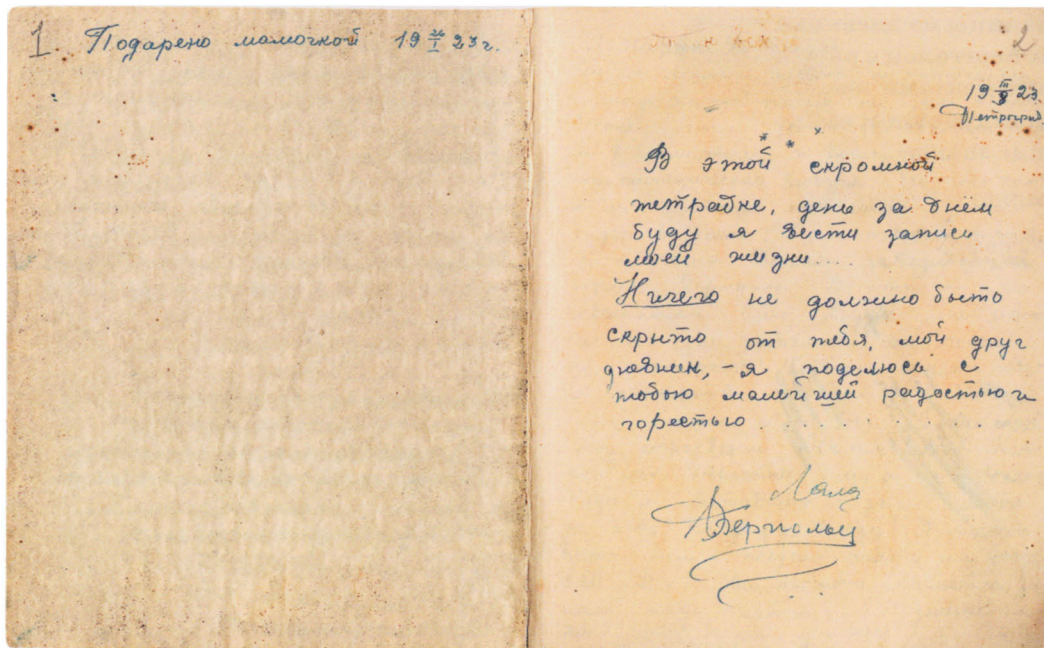 1
Подарено мамочкой 19 26/I 23 г.
2
19 23.
Петроград
* * *
В этой скромной
тетрадке, день за днём
буду я вести записи
моей жизни....
Ничего не должно быть
скрыто от тебя, мой друг
дневник, – я поделюсь с
тобою малейшей радостью и
горестью . . . . . . . . . . .
Ляля
Берггольц